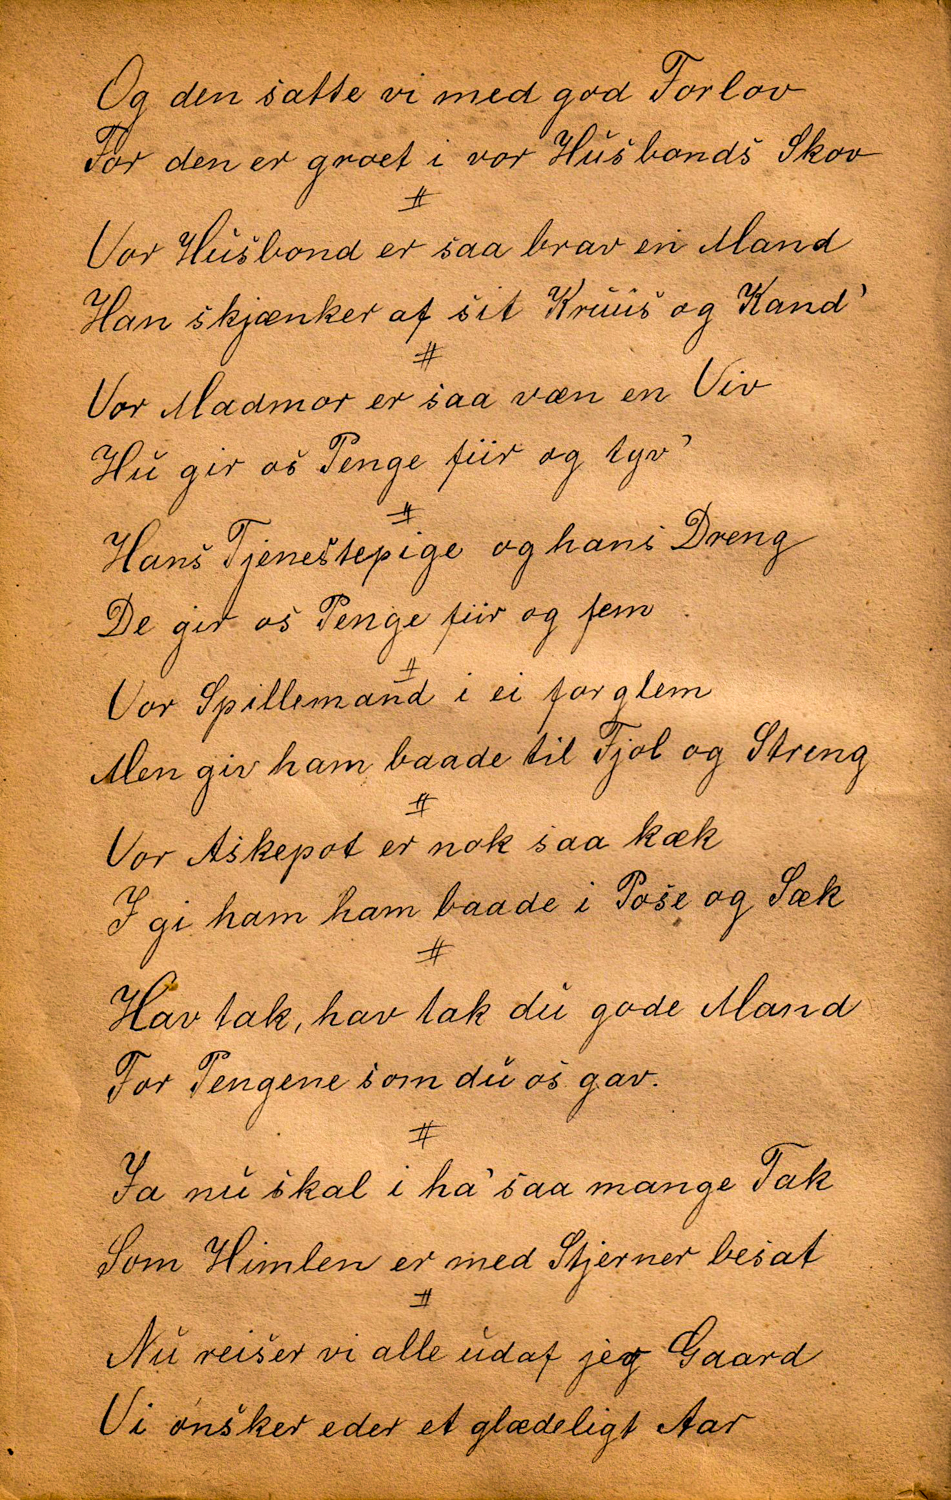 Og den satte vi med god Forlov
For den er groet i vor Husbonds Skov
#
Vor Husbond er saa brav en Mand
Han skjænker af sit Kruus og Kand'
#
Vor Madmor er saa væn en Viv
Hu gir os Penge fiir og tyv'
#
Hans Tjenestepige og hans Dreng
De gir os Penge fiir og fem
#
Vor Spillemand i ei forglem
Men giv ham baade til Fjol og Streng
#
Vor Askepot er nok saa kæk
I gi ham ham baade i Pose og Sæk
#
Hav tak, hav tak du gode Mand
For Pengene som du os gav.
#
Ja nu skal i ha' saa mange Tak
Som Himlen er med Stjerner besat
#
Nu reiser vi alle udaf jeg Gaard
Vi ønsker eder et glædeligt Aar